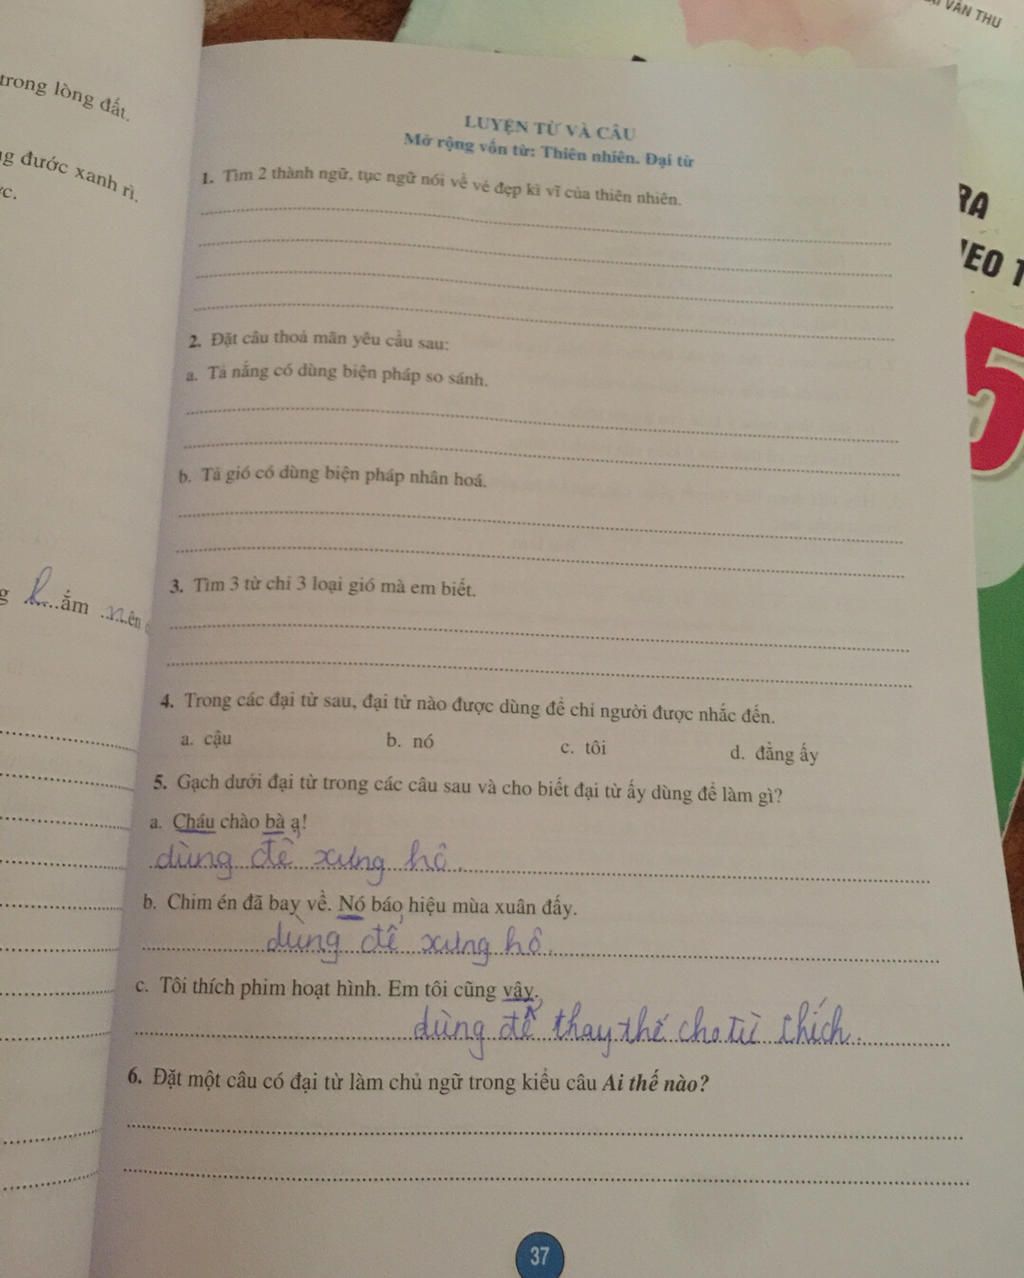 VĂN THU
trong lòng đất.
g đước xanh rì.
RA
5
LUYỆN TỪ VÀ CÂU
Mở rộng vốn từ: Thiên nhiên. Đại từ
1. Tìm 2 thành ngữ, tục ngữ nói về vẻ đẹp kì vĩ của thiên nhiên.
2. Đặt câu thoả mãn yêu cầu sau:
a. Tả nắng có dùng biện pháp so sánh.
b. Tả gió có dùng biện pháp nhân hoá.
3. Tìm 3 từ chỉ 3 loại gió mà em biết.
g l...ắm ..n..ên
4. Trong các đại từ sau, đại từ nào được dùng để chỉ người được nhắc đến.
a. cậu b. nó c. tôi d. đằng ấy
5. Gạch dưới đại từ trong các câu sau và cho biết đại từ ấy dùng để làm gì?
a. Cháu chào bà ạ!
dùng để xưng hô.
b. Chim én đã bay về. Nó báo hiệu mùa xuân đấy.
dùng để xưng hô.
c. Tôi thích phim hoạt hình. Em tôi cũng vậy.
dùng để thay thế cho từ thích.
6. Đặt một câu có đại từ làm chủ ngữ trong kiểu câu Ai thế nào?
37